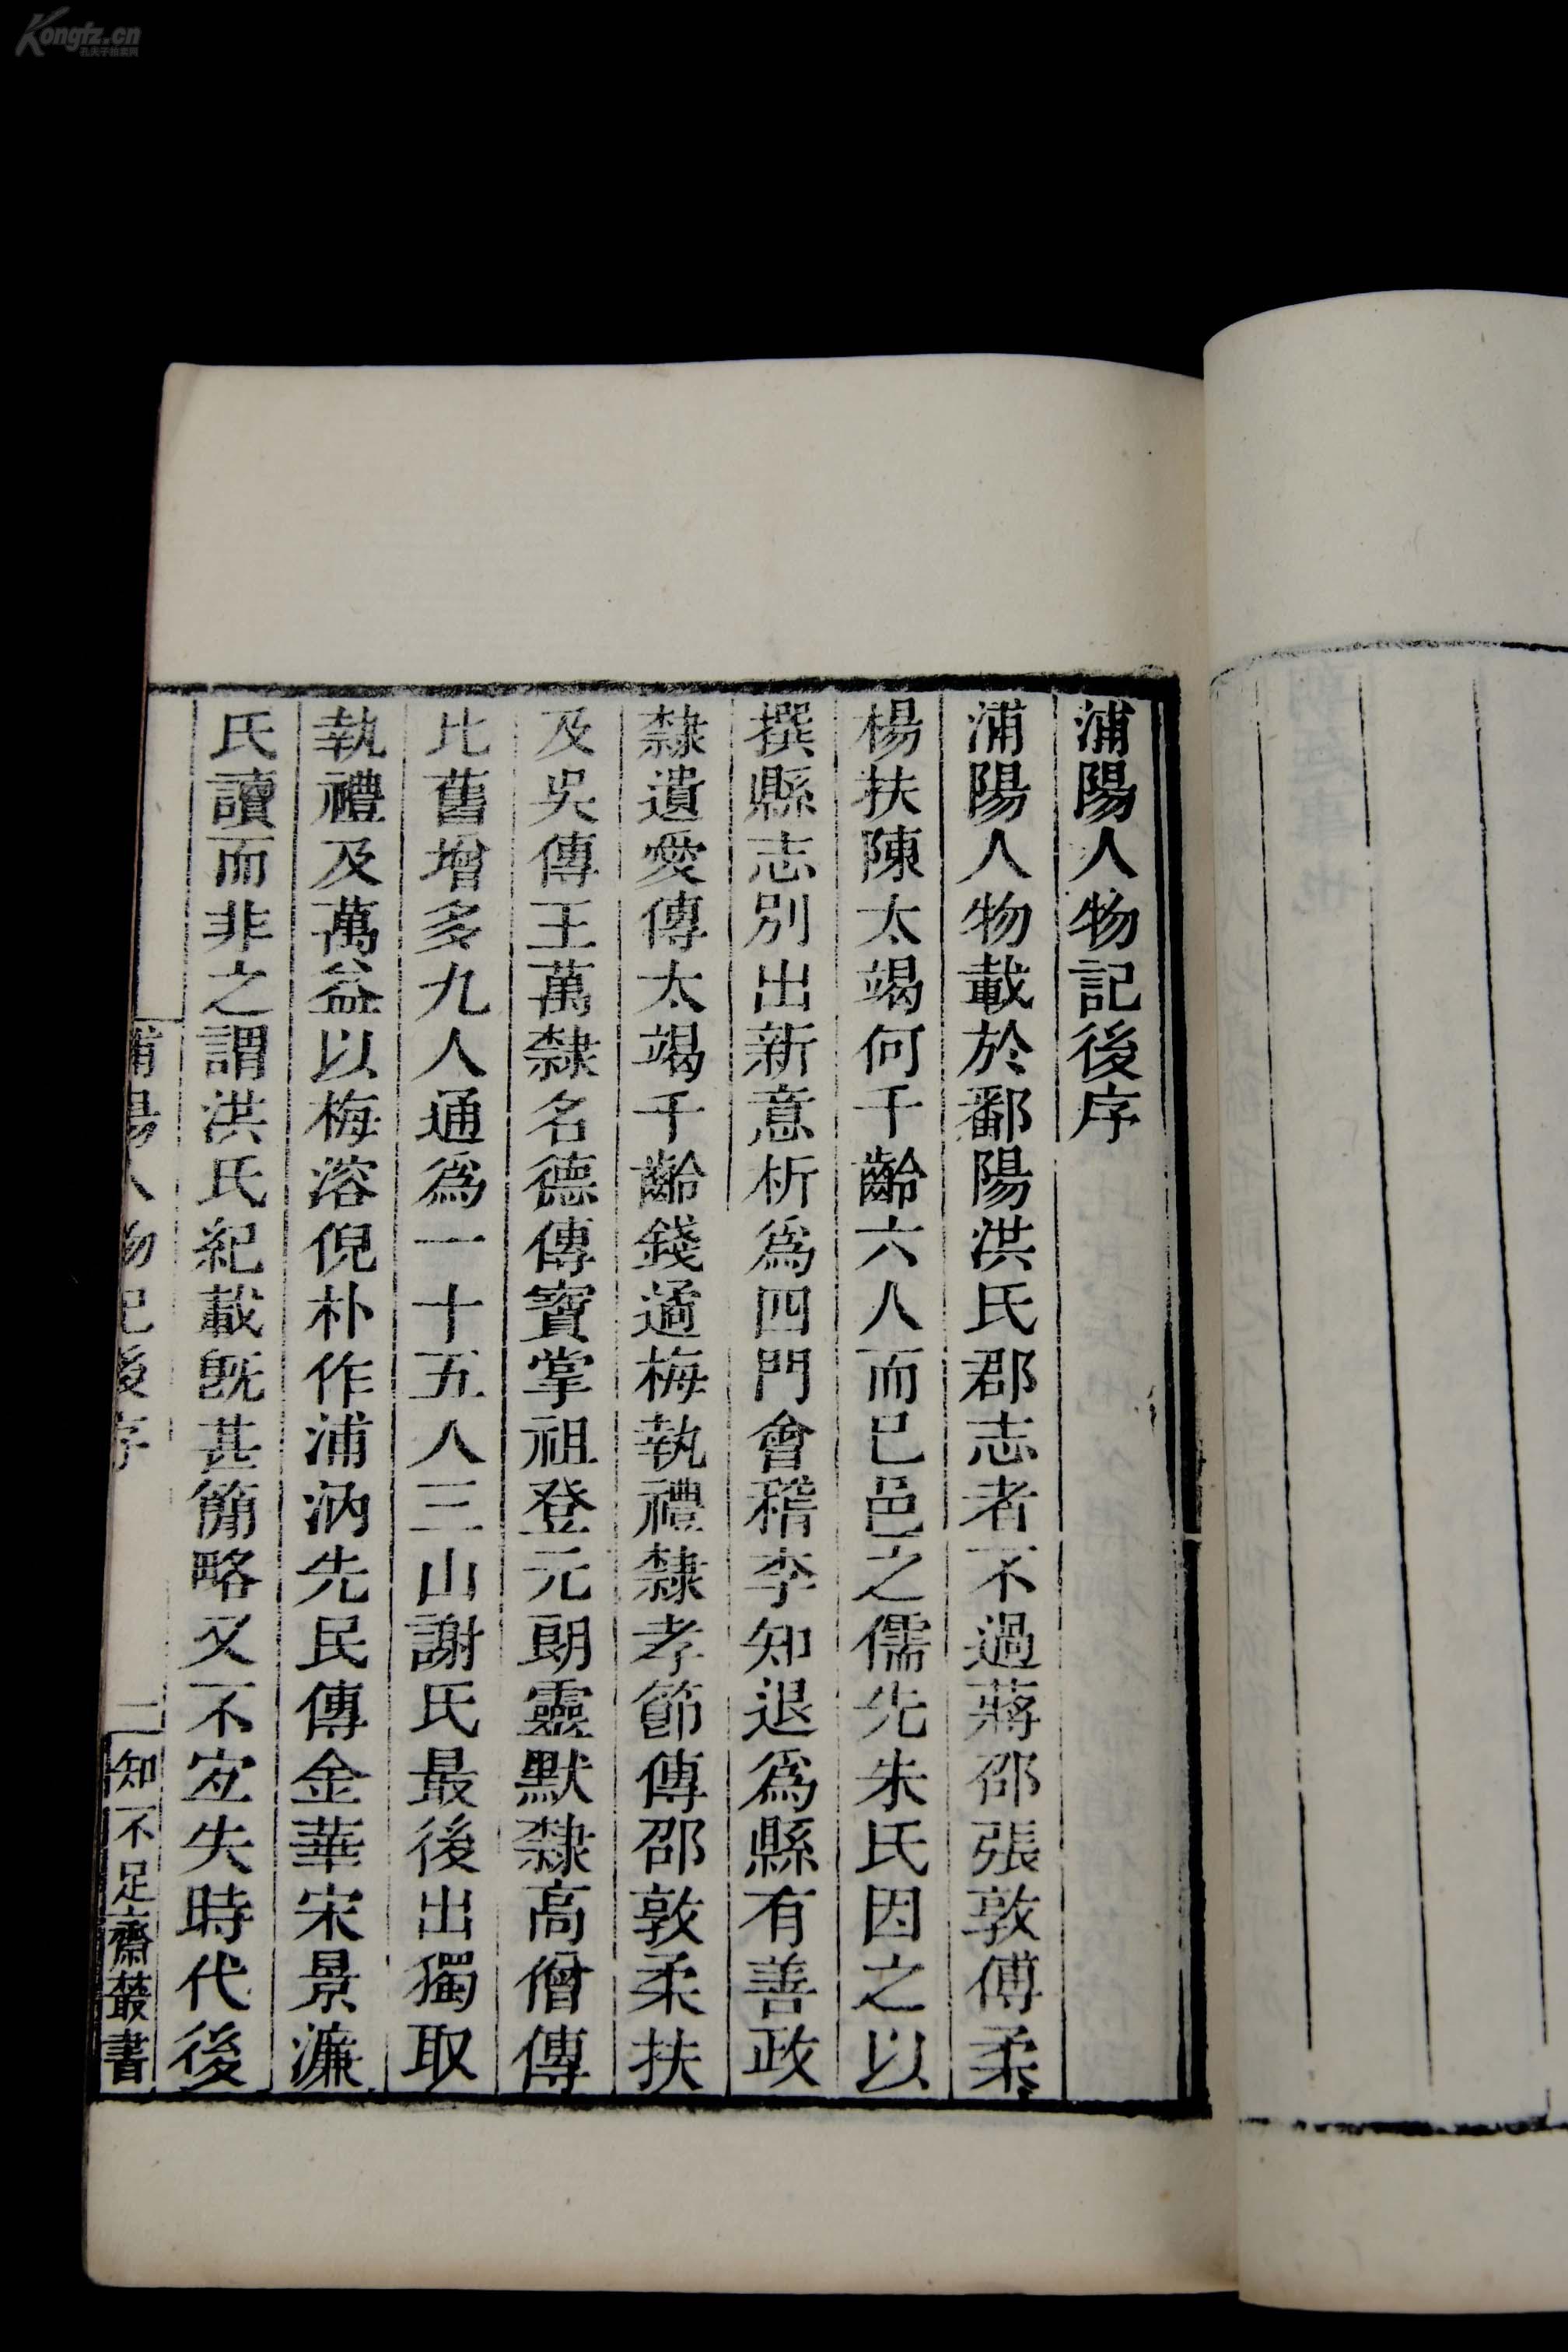 浦陽人物記後序
浦陽人物載於鄱陽洪氏郡志者不過蔣邵張敦傅柔
楊扶陳太竭何千齡六人而已邑之儒先朱氏因之以
撰縣志別出新意析爲四門會稽李知退爲縣有善政
隸遺愛傳太竭千齡錢遹梅執禮隸孝節傳邵敦柔扶
及吳傳王萬隸名德傳寶掌祖登元朗靈默隸高僧傳
比舊增多九人通爲一十五人三山謝氏最後出獨取
執禮及萬益以梅溶倪朴作浦汭先民傳金華宋景濂
氏讀而非之謂洪氏紀載旣甚簡略又不宐失時代後
浦陽人物記後序
二
知不足齋叢書
Kongfz.cn
孔夫子拍卖网